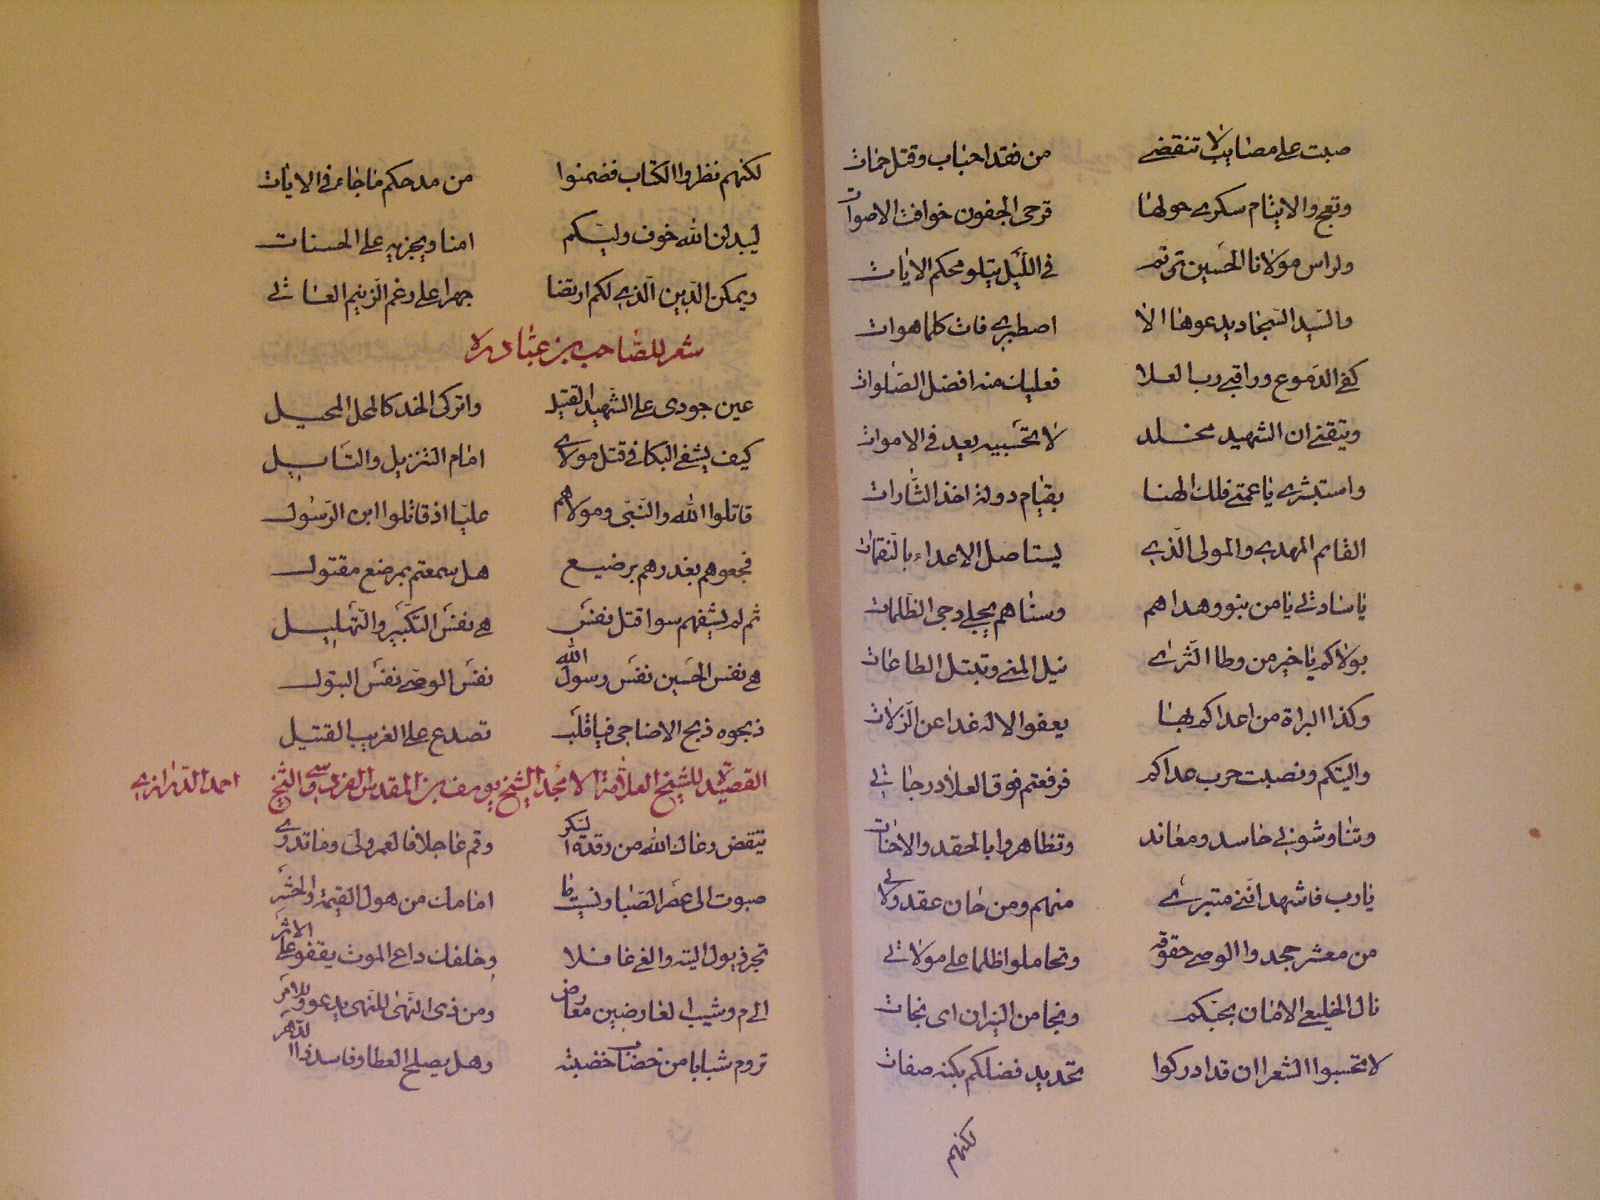 صبت على مصايب لا تنقضي من فقد احباب وقتل حمات
وتعج والايتام سكرى حولها قرحى الجفون خوافت الاصوات
ولراس مولانا الحسين ترنم في الليل يتلو محكم الايات
والسيد السجاد يدعوها الا اصطبري فات كلما هوات
كفي الدموع وراقبي رب العلا فعليك منه افضل الصلوات
وتيقني ان الشهيد مخلد لا تحسبيه يعيد في الاموات
واستبشري يا عمتي فلك الهنا بقيام دولة اخذ الثارات
القائم المهدي والمولى الذي يستاصل الاعداء بالنقمات
يا سادتي يا من بنو وهداهم وسناهم يجلي دجى الظلمات
بولاكم يا خير من وطا الثرى نيل المنى وتبتل الطاعات
وكذا البراة من اعداكم بها يعفوا الاله غدا عن الزلات
واليتكم ونصبت حرب عداكم فرفعتم فوق العلا درجاتي
وتناوشوني حاسد ومعاند وتظاهروا بالحقد والاحنات
يا رب فاشهد انني متبرئ منهم ومن خان عقد ولائي
من معشر جحدوا الوصي حقوقه وتحاملوا ظلما على مولاتي
نال الخليعي الامان بحبكم ونجا من النيران اي نجات
لا تحسبوا الشعرا ان قد ادركوا تحديد فضلكم بكنه صفات
لكنهم
لكنهم نظروا الكتاب فضمنوا من مدحكم ما جاء في الايات
ليبدلن الله خوف وليكم امنا ويجزيه على الحسنات
ويمكن الدين الذي لكم ارتضا جهرا على رغم الزنيم العاتي
شعر للصاحب بن عباد ره
عين جودي على الشهيد القتيل واتركى الخد كالمحل المحيل
كيف يشفي البكا في قتل مولاي امام التنزيل والتاويل
قاتلوا الله والنبى ومولاهم عليا اذ قاتلوا ابن الرسول
فجعوهم بغدرهم برضيع هل سمعتم بمرضع مقتول
ثم لم يشفهم سوا قتل نفس هي نفس التكبير والتهليل
هي نفس الحسين نفس رسول الله نفس الوصي نفس البتول
ذبحوه ذبح الاضاحي فيا قلب تصدع على الغريب القتيل
القصيدة للشيخ العلامة الامجد الشيخ يوسف بن المقدس الشيخ احمد الدرازي
تيقض رعاك الله من رقدة السكر وقم عاجلا فالعمر ولى وما تدري
صبوت الى عصر الصبا ونسيت ما امامك من هول القيمة والحشر
تجر ذيول التيه والغي غافلا وخلفك داعي الموت يقفو على الاثر
الى م وشيب العارضين معارض ومن ذى النهى للنهى يدعو وللامر
تروم شبابا من خضاب خضبته وهل يصلح العطار ما افسد الدهر